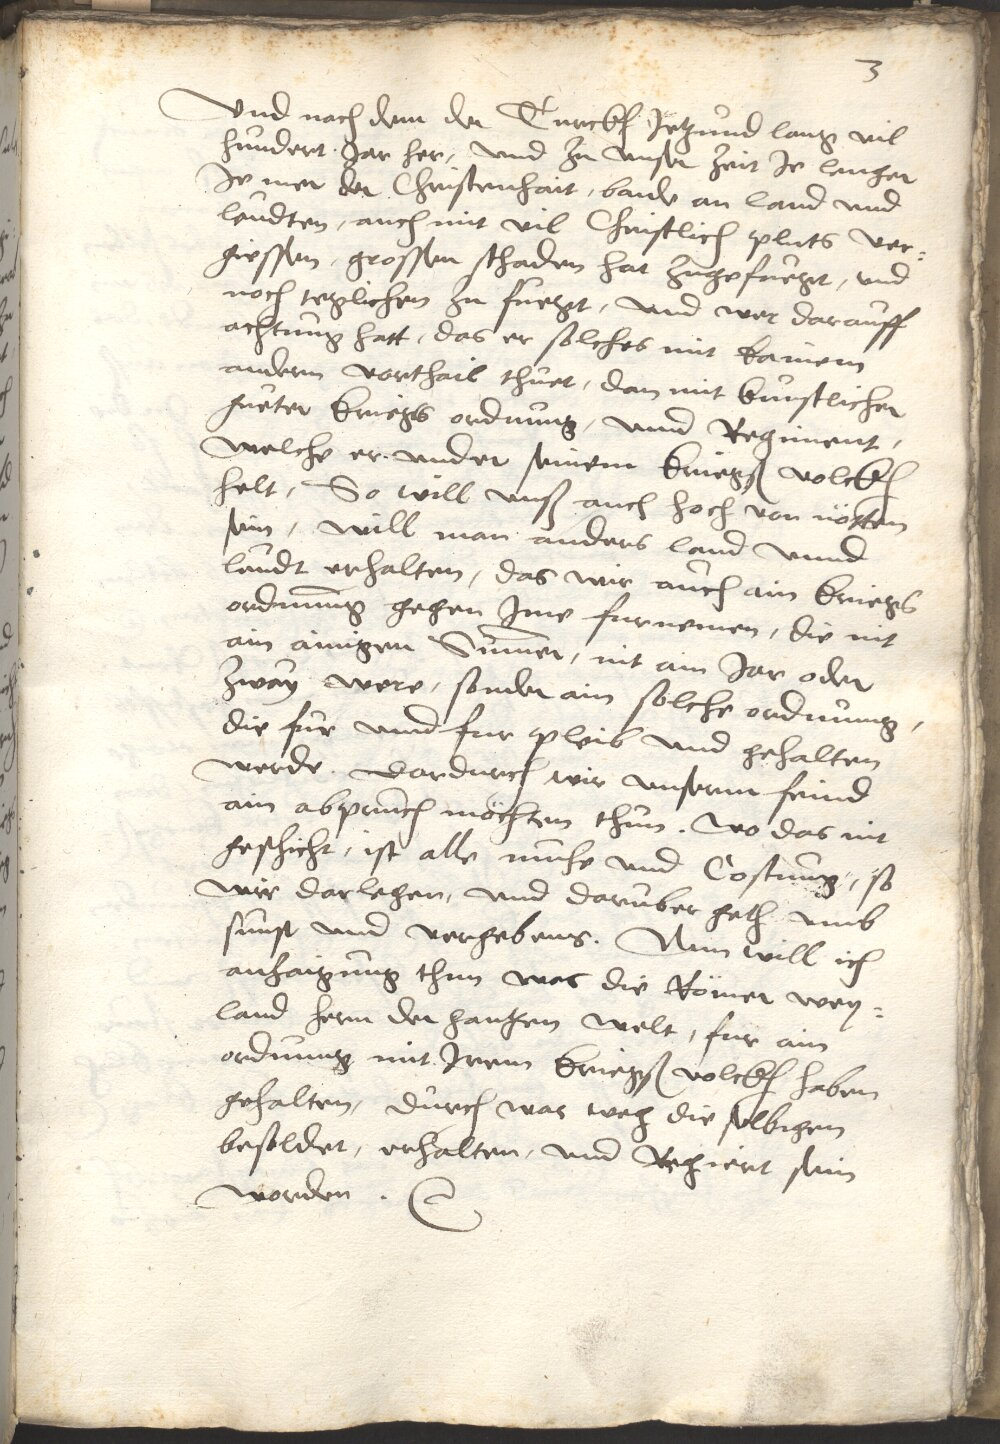 3
Vnd nach dem der Turckh Jetzund lang vil
hundert Jar her, vnd zu vnser zeit Je lenger
Je mer der Christenhait, baide an land vnd
leudten, auch mit vil Christlich pluts ver=
giessen, grossen schaden hat zugefuegt, vnd
noch teglichen zu fuegt, vnd wer darauff
achtung hatt, das er solches mit kainem
anderm vorthail thuet, dan mit kunstlicher
gueter kriegs ordnung, vnnd Regiment,
welche er vnder seinem kriegß volckh
helt, So will vnß auch hoch von nötten
sein, will man anders land vnnd
leudt erhalten, das wir auch ain kriegs
ordnung gegen Jme furnemen, die nit
ain ainigen Summer, nit ain Jar oder
zway were, sonder ain solche ordnung,
die fur vnnd fur pleib vnd gehalten
werde. dardurch wir vnserm feind
ain abpruch möchten thun. wo das nit
geschicht, ist alle muhe vnd Costung, so
wir darlegen, vnd daruber geth vmb
sunst vnd vergebens. Nun will ich
anzaigung thun was die Römer wey=
land herrn der gantzen welt, fur ain
ordnung mit Jrem kriegß volckh haben
gehalten, durch was weg die selbigen
besoldet, erhalten, vnd Regiert sein
worden.